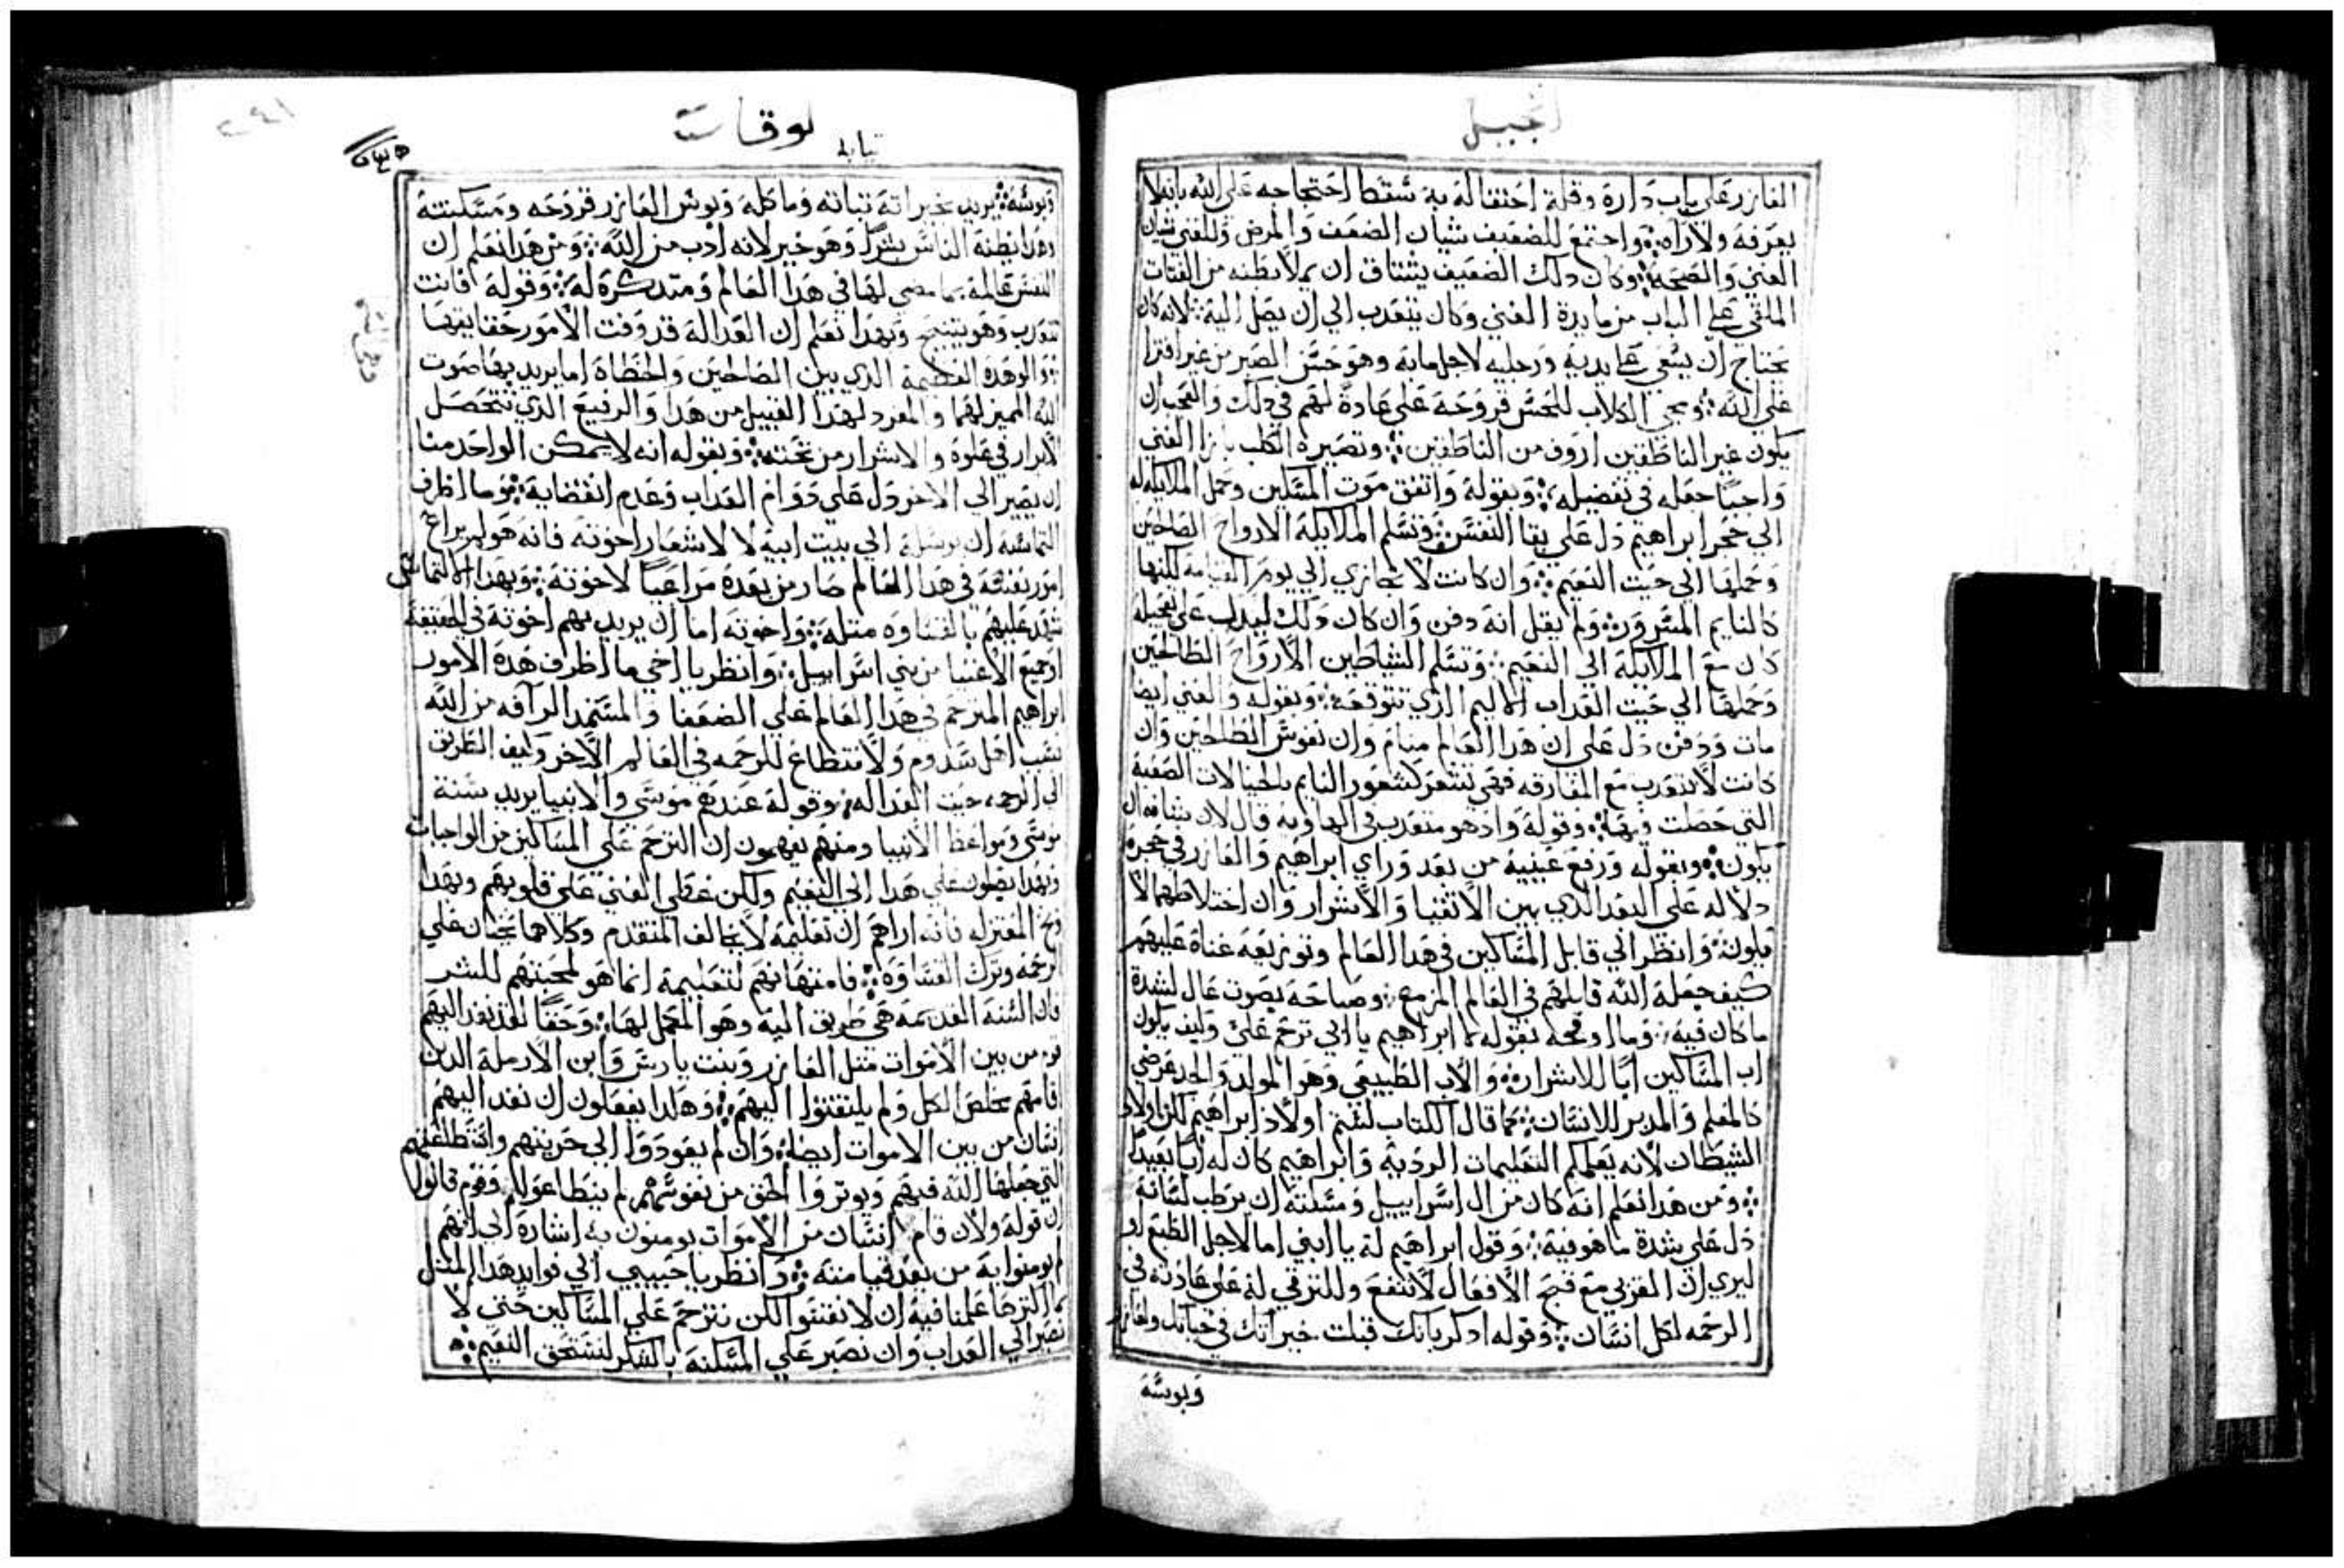 انجيل
العازر على باب داره وقلة احتفاله به سقط احتجاجه على الله بانه لا
يعرفه ولا رآه ۞ واجتمع للضعيف شيان الضعف والمرض وللغني شيان
الغنى والصحة ۞ وكان دلك الضعيف يشتاق ان يملا بطنه من الفتات
الملقى على الباب من مايدة الغني وكان يتعدب الي ان يصل اليه ۞ لانه كان
يحتاج ان يسعى على يديه ورجليه لاجل مابه وهو حسن الصبر من غير افترا
على الله ۞ ومجي الكلاب للحس قروحه على عادة لهم في دلك والعجب ان
يكون غير الناطقين اروف من الناطقين ۞ وتصيره الكلب بازا الغني
واجبا جعله في تفضيله ۞ وبقوله واتفق موت المسكين وحمل الملايكة له
الي حجر ابراهيم دل على بقا النفس ۞ وتسلم الملايكة الارواح الصالحين
وحملها الى حيت النعيم ۞ وان كانت لا تجازي الي يوم القيامه لكنها
كالنايم المسرور ۞ ولم يقل انه دفن وان كان دلك ليدل على تعجيله
كان مع الملايكة الي النعيم ۞ وتسلم الشياطين الارواح الطالحين
وحملها الي حيت العداب الاليم الذي تتوقعه ۞ وبقوله والغني ايضا
مات ودفن دل على ان هدا العالم منام وان نفوس الطالحين وان
كانت لا تتعدب مع المفارقه فهي تشعر كشعور النايم بالخيالات الصعبة
التي حصلت فيها ۞ وقوله واد هو متعدب في الهاويه قال لان شانه ان
يكون ۞ وبقوله ورفع عينيه من بعد وراي ابراهيم والعازر في حجره
دلاله على البعد الدي بين الاتقيا والاشرار وان اختلاطهما لا
يكون ۞ وانظر الي قابل المساكين في هدا العالم وتوزيعه غناه عليهم
كيف جعله الله قابلهم في العالم المزمع ۞ وصياحه بصوت عال لشدة
ما كان فيه ۞ وما اوقحه بقوله يا ابراهيم يا ابي ترحم علي وكيف يكون
اب المساكين ابا للاشرار ۞ والاب الطبيعي وهو المولد والجد عرضي
كالمعلم والمدبر للانسان ۞ كما قال الكتاب لستم اولاد ابراهيم لكن اولاد
الشيطان لانه يعلمكم التعليمات الرديه وابراهيم كان له ابا بعيدا
۞ ومن هدا نعلم انه كان من ال اسراييل ومسلته ان يرطب لسانه
دل على شدة ما هو فيه ۞ وقول ابراهيم له يا ابني اما لاجل الطبع او
ليري ان القربى مع قبح الافعال لا تنفع وللترقي له على عادته في
الرحمه لكل انسان ۞ وقوله ادكر بانك قبلت خيراتك في حياتك ولعازر
وبوسه
لوقا
وبوسه ۞ يريد بخيراته تباته وماكله وبوس العازر قروحه ومسكنته
وهدا يظنه الناس شرا وهو خير لانه ادب من الله ۞ ومن هدا نعلم ان
النفس عالمة بما مضى لها في هدا العالم ومتدكرة له ۞ وقوله فانت
تتعدب وهو يتنيح وبهدا نعلم ان العداله قد وفت الامور حقايقها
۞ والوهدة العظيمة الدي بين الصالحين والخطاة اما يريد بها صوت
الله المميز لهما والمعرد لهدا القبيل من هدا والرفيع الدي تتحصل
الابرار في علوه والاشرار من تحته ۞ وبقوله انه لا يمكن الواحد منا
ان يصير الي الاخر دل على دوام العداب وعدم انقضايه ۞ وما اظرف
التماسه ان يرسله الي بيت ابيه لا لاشعار اخوته فانه هو لم يراع
امور نفسه في هدا العالم صار من بعده مراعيا لاخوته ۞ وبهدا الالتماس
شهد عليهم بالقساوه متله ۞ واخوته اما ان يريد بهم اخوته في الحقيقة
او جميع الاغنيا من بني اسراييل ۞ وانظر يا اخي ما اظرف هده الامور
ابراهيم المترحم في هدا العالم على الضعفا والمستمد الرافه من الله
بسبب اهل سدوم ولانقطاع للرحمه في العالم الاخر وكيف الطريق
الى الرحمه حيت العداله ۞ وقوله عندهم موسى والانبيا يريد سنة
موسى ومواعظ الانبيا ومنهم يفهمون ان الترحم على المساكين من الواجبات
وبهدا يصلون على هدا الى النعيم ولكن غطى الغني على قلوبهم وبهدا
وبخ المعتزله فانه اراهم ان تعليمه لا يخالف المتقدم وكلاهما يحثان على
الرحمه وترك القساوه ۞ فامتهانهم لتعليمه انما هو لمحبتهم للشر
فان السنة القديمه هي طريق اليه وهو المكمل لها ۞ وحقا لقد نفد اليهم
قوم من بين الاموات متل العازر وبنت يارس وابن الارملة الدين
اقامهم مخلص الكل ولم يلتفتوا اليهم ۞ وهكدا يفعلون ان نفد اليهم
انسان من بين الاموات ايضا ۞ وان لم يعودوا الي حريتهم واستطاعتهم
التي جعلها الله فيهم ويوتروا الحق من نفوسهم لم ينطاعوا له وقوم قالوا
ان قوله ولان قام انسان من الاموات يومنون به اشارة الي انهم
لم يومنوا به من بعد قيامته ۞ وانظر يا حبيبي الي فوايد هدا المتل
كما الترحا علمنا فيه ان لا نقسوا لكن نترحم على المساكين حتى لا
نصير الي العداب وان نصبر على المسكنه بالشكر لنستحق النعيم ۞